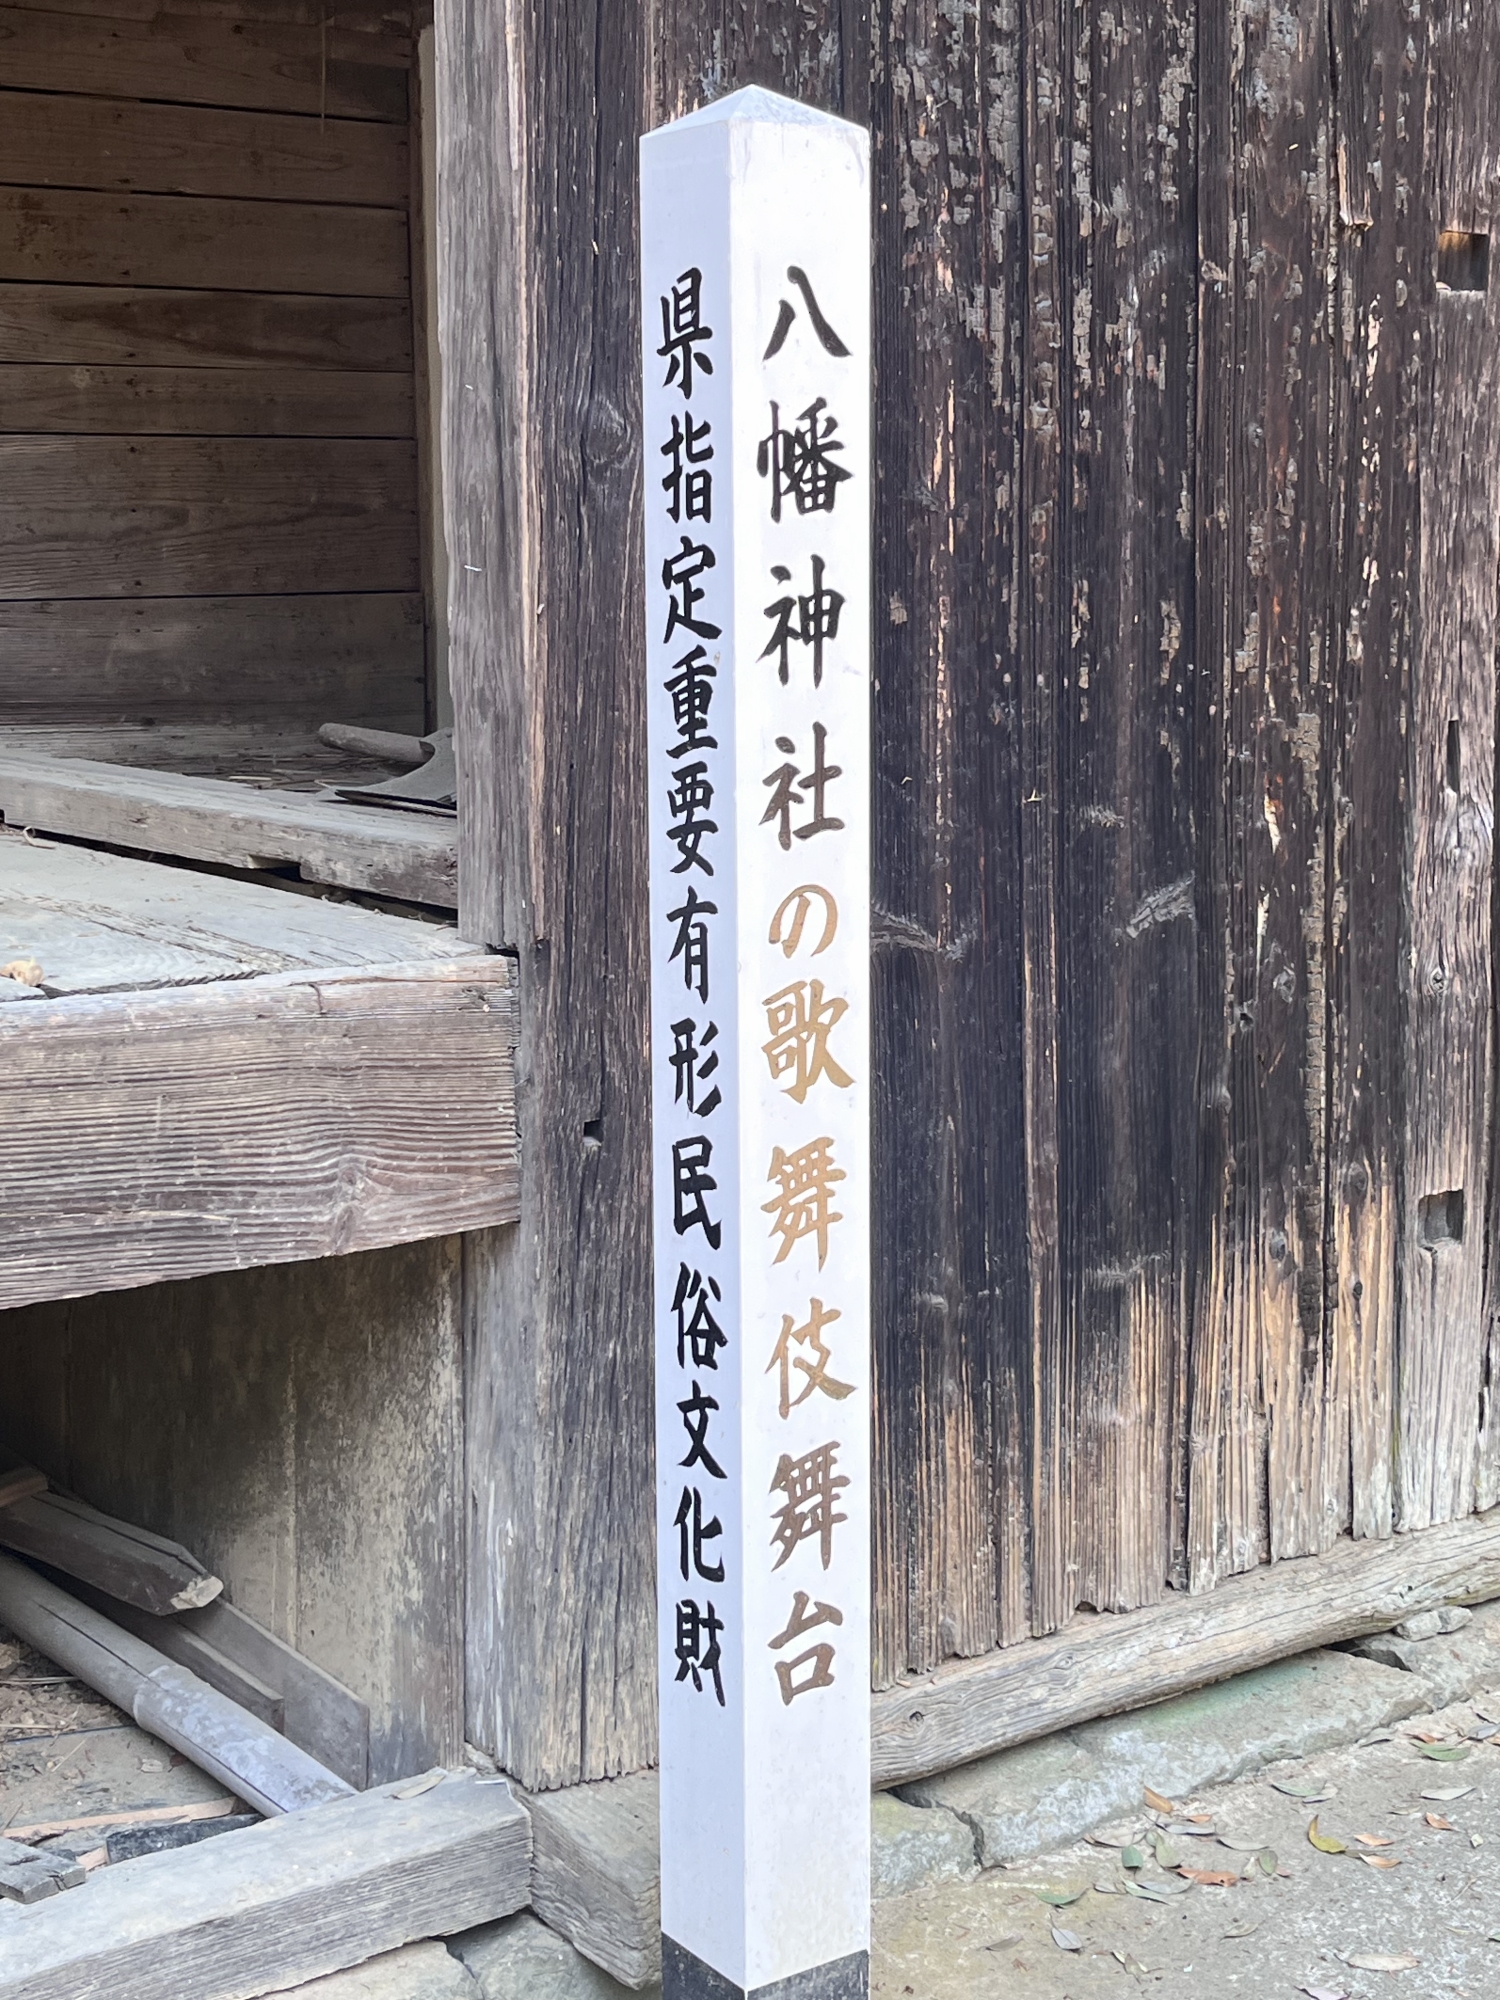 八幡神社の歌舞伎舞台
県指定重要有形民俗文化財